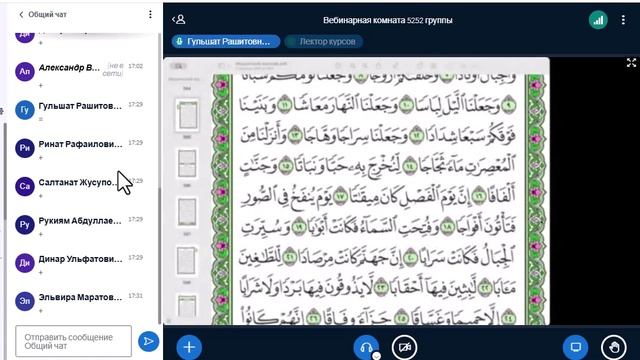 Общий чат
+
Александр В... (не в сети) 17:02
+
Гульшат Рашитов... 17:29
=
Ринат Рафаилови... 17:29
+
Салтанат Жусупо... 17:29
+
Рукиям Абдуллае... 17:29
+
Динар Ульфатови... 17:29
+
Эльвира Маратов... 17:31
+
Отправить сообщение
Общий чат
Вебинарная комната 5252 группы
Гульшат Рашитовн... Лектор курсов
وَجَعَلْنَا ٱلَّيْلَ لِبَاسًا ١٠ وَجَعَلْنَا ٱلنَّهَارَ مَعَاشًا ١١ وَبَنَيْنَا
فَوْقَكُمْ سَبْعًا شِدَادًا ١٢ وَجَعَلْنَا سِرَاجًا وَهَّاجًا ١٣ وَأَنزَلْنَا مِنَ
ٱلْمُعْصِرَٰتِ مَآءً ثَجَّاجًا ١٤ لِّنُخْرِجَ بِهِۦ حَبًّا وَنَبَاتًا ١٥ وَجَنَّٰتٍ
أَلْفَافًا ١٦ إِنَّ يَوْمَ ٱلْفَصْلِ كَانَ مِيقَٰتًا ١٧ يَوْمَ يُنفَخُ فِى ٱلصُّورِ
فَتَأْتُونَ أَفْوَاجًا ١٨ وَفُتِحَتِ ٱلسَّمَآءُ فَكَانَتْ أَبْوَٰبًا ١٩ وَسُيِّرَتِ
ٱلْجِبَالُ فَكَانَتْ سَرَابًا ٢٠ إِنَّ جَهَنَّمَ كَانَتْ مِرْصَادًا ٢١ لِّلطَّٰغِينَ
مَـَٔابًا ٢٢ لَّٰبِثِينَ فِيهَآ أَحْقَابًا ٢٣ لَّا يَذُوقُونَ فِيهَا بَرْدًا وَلَا شَرَابًا
٢٤ إِلَّا حَمِيمًا وَغَسَّاقًا ٢٥ جَزَآءً وِفَاقًا ٢٦ إِنَّهُمْ كَانُوا۟